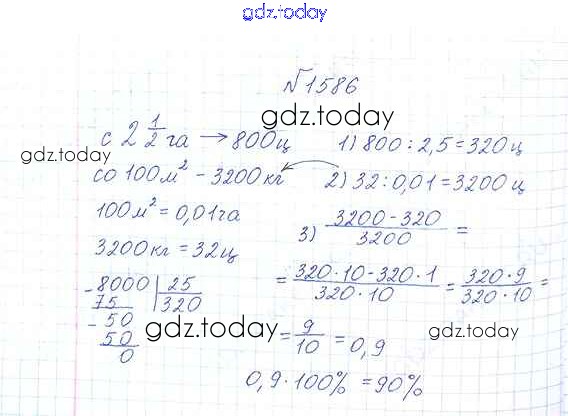 gdz.today
№1586
gdz.today
с 2 1/2 га → 800ц 1) 800 : 2,5 = 320 ц
gdz.today
со 100 м² - 3200 кг 2) 32 : 0,01 = 3200 ц
100 м² = 0,01 га 3) (3200 - 320)/3200 =
3200 кг = 32 ц
= (320·10 - 320·1)/(320·10) = (320·9)/(320·10) =
- 8000 | 25
75 | 320
- 50
50
0
gdz.today
= 9/10 = 0,9
gdz.today
0,9 · 100% = 90%